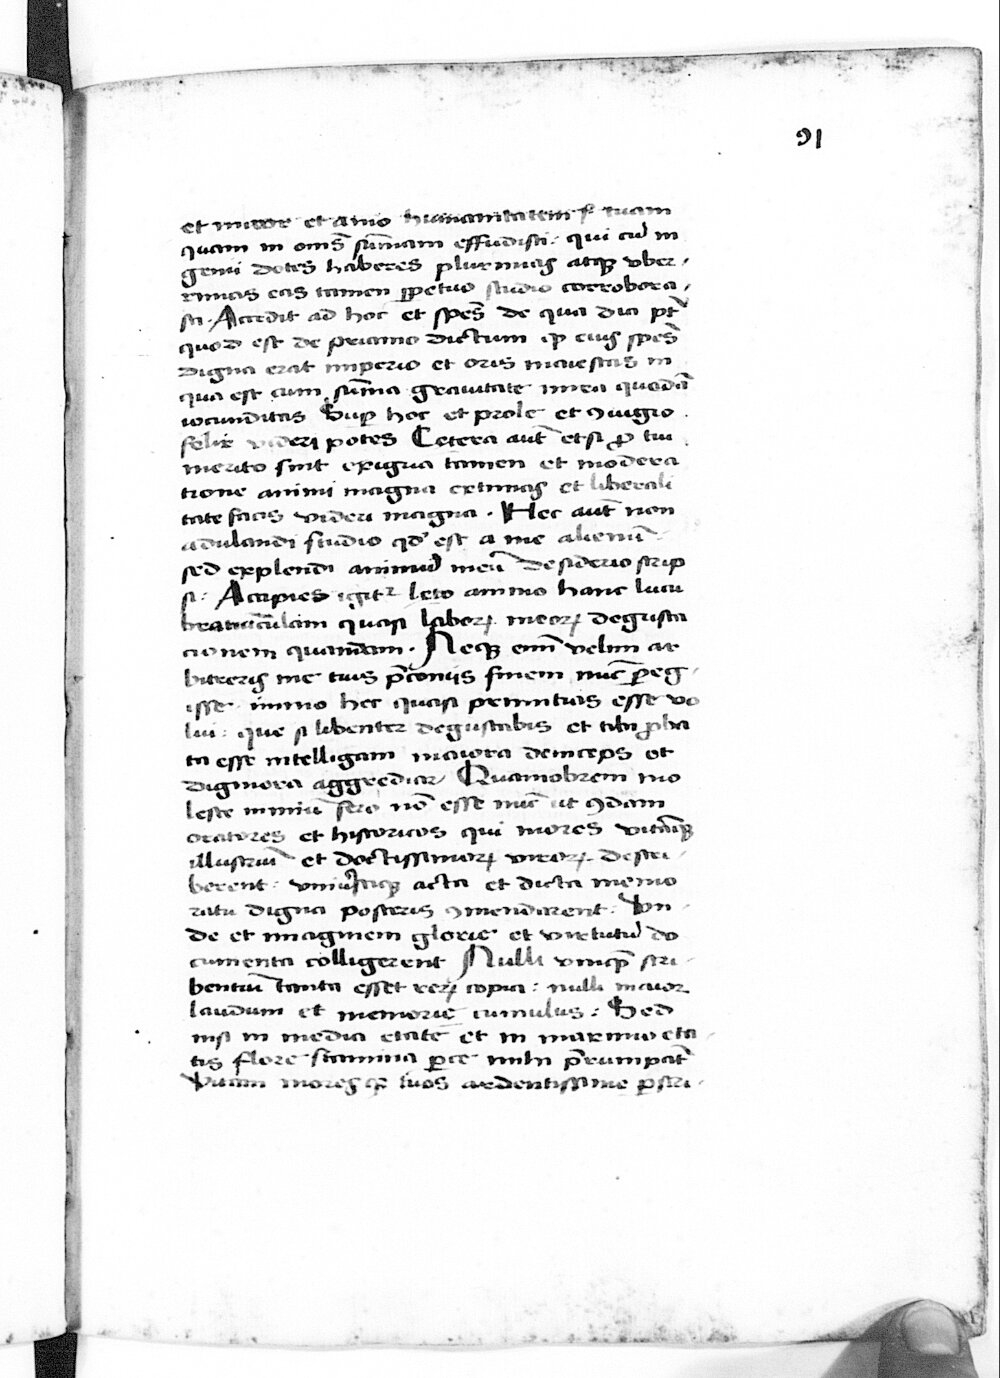 91
et miror et amo humanitatem tuam
quam in om̄s sūmam effudisti: qui cū in
genii dotes haberes plurimas atqꝫ vber
rimas eas tamen ꝑpetuo studio corrobora
sti. Accedit ad hoc et spēs de qua dici pt̄
quod est de priamo dictum ꝙ eius spēs
digna erat imperio et oris maiestas in
qua est cum sūma grauitate mira quedā
iocunditas Sup hoc et prole et ɔiugio
felix videri potes Cetera aut̄ etsi ꝓ tui
merito sint exigua tamen et modera
tione animi magna extimas et liberali
tate facis videri magna. Hec aut̄ non
adulandi studio qd̓ est a me alienū
sed explendi animū meū desiderio scrip
si: Accipies igitr leto animo hanc lucu
bratiūculam quasi laboꝝ meoꝝ degusta
cionem quamdam. Neqꝫ enī velim ar
bitreris me tuis p̄coniis finem nūc ꝑeg
isse immo hec quasi penitus esse vo
lui: que si libenter degustabis et tibi ꝓba
ta esse intelligam maiora deinceps et
digniora aggrediar Quamobrem mo
leste nimiū fero nō esse nūc ut ɋdam
oratores et historicos qui mores vitāqꝫ
illustriū et doctissimoꝝ viroꝝ descri
berent: vniuscuiqꝫ acta et dicta memo
ratu digna posteris ɔmendarent: Vn
de et imaginem glorie et virtutū do
cumenta colligerent Nulli vnqꝫ scri
bentiū tanta esset reꝝ copia: nulli maior
laudum et memorie cumulus: Sed
nisi in media etate et in maximo eta
tis flore stamina ꝑce mihi p̄rumpāt
Vitam moresqꝫ tuos ardentissime ꝑscri